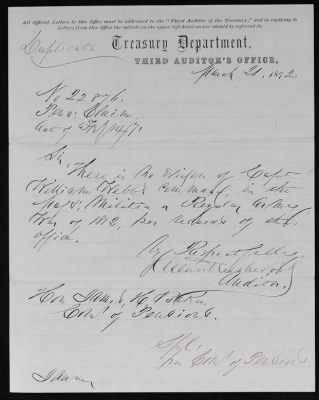 All official Letters to this Office must be addressed to the "Third Auditor of the Treasury," and in replying to
Letters from this Office the initials on the upper left hand corner should be referred to.
Duplicate
Treasury Department,
THIRD AUDITOR'S OFFICE,
March 21, 1872.
No 22876.
Pen. Claim
Act of Feb 14/71
Sir,
There is no evidence of Capt
William Webb's Company, in the
Militia or Regular Army
War of 1812, per records of this
office.
Very Respectfully
Allan Rutherford
Auditor
Hon James H. Baker
Com' of Pensions.
per Com' of Pensions